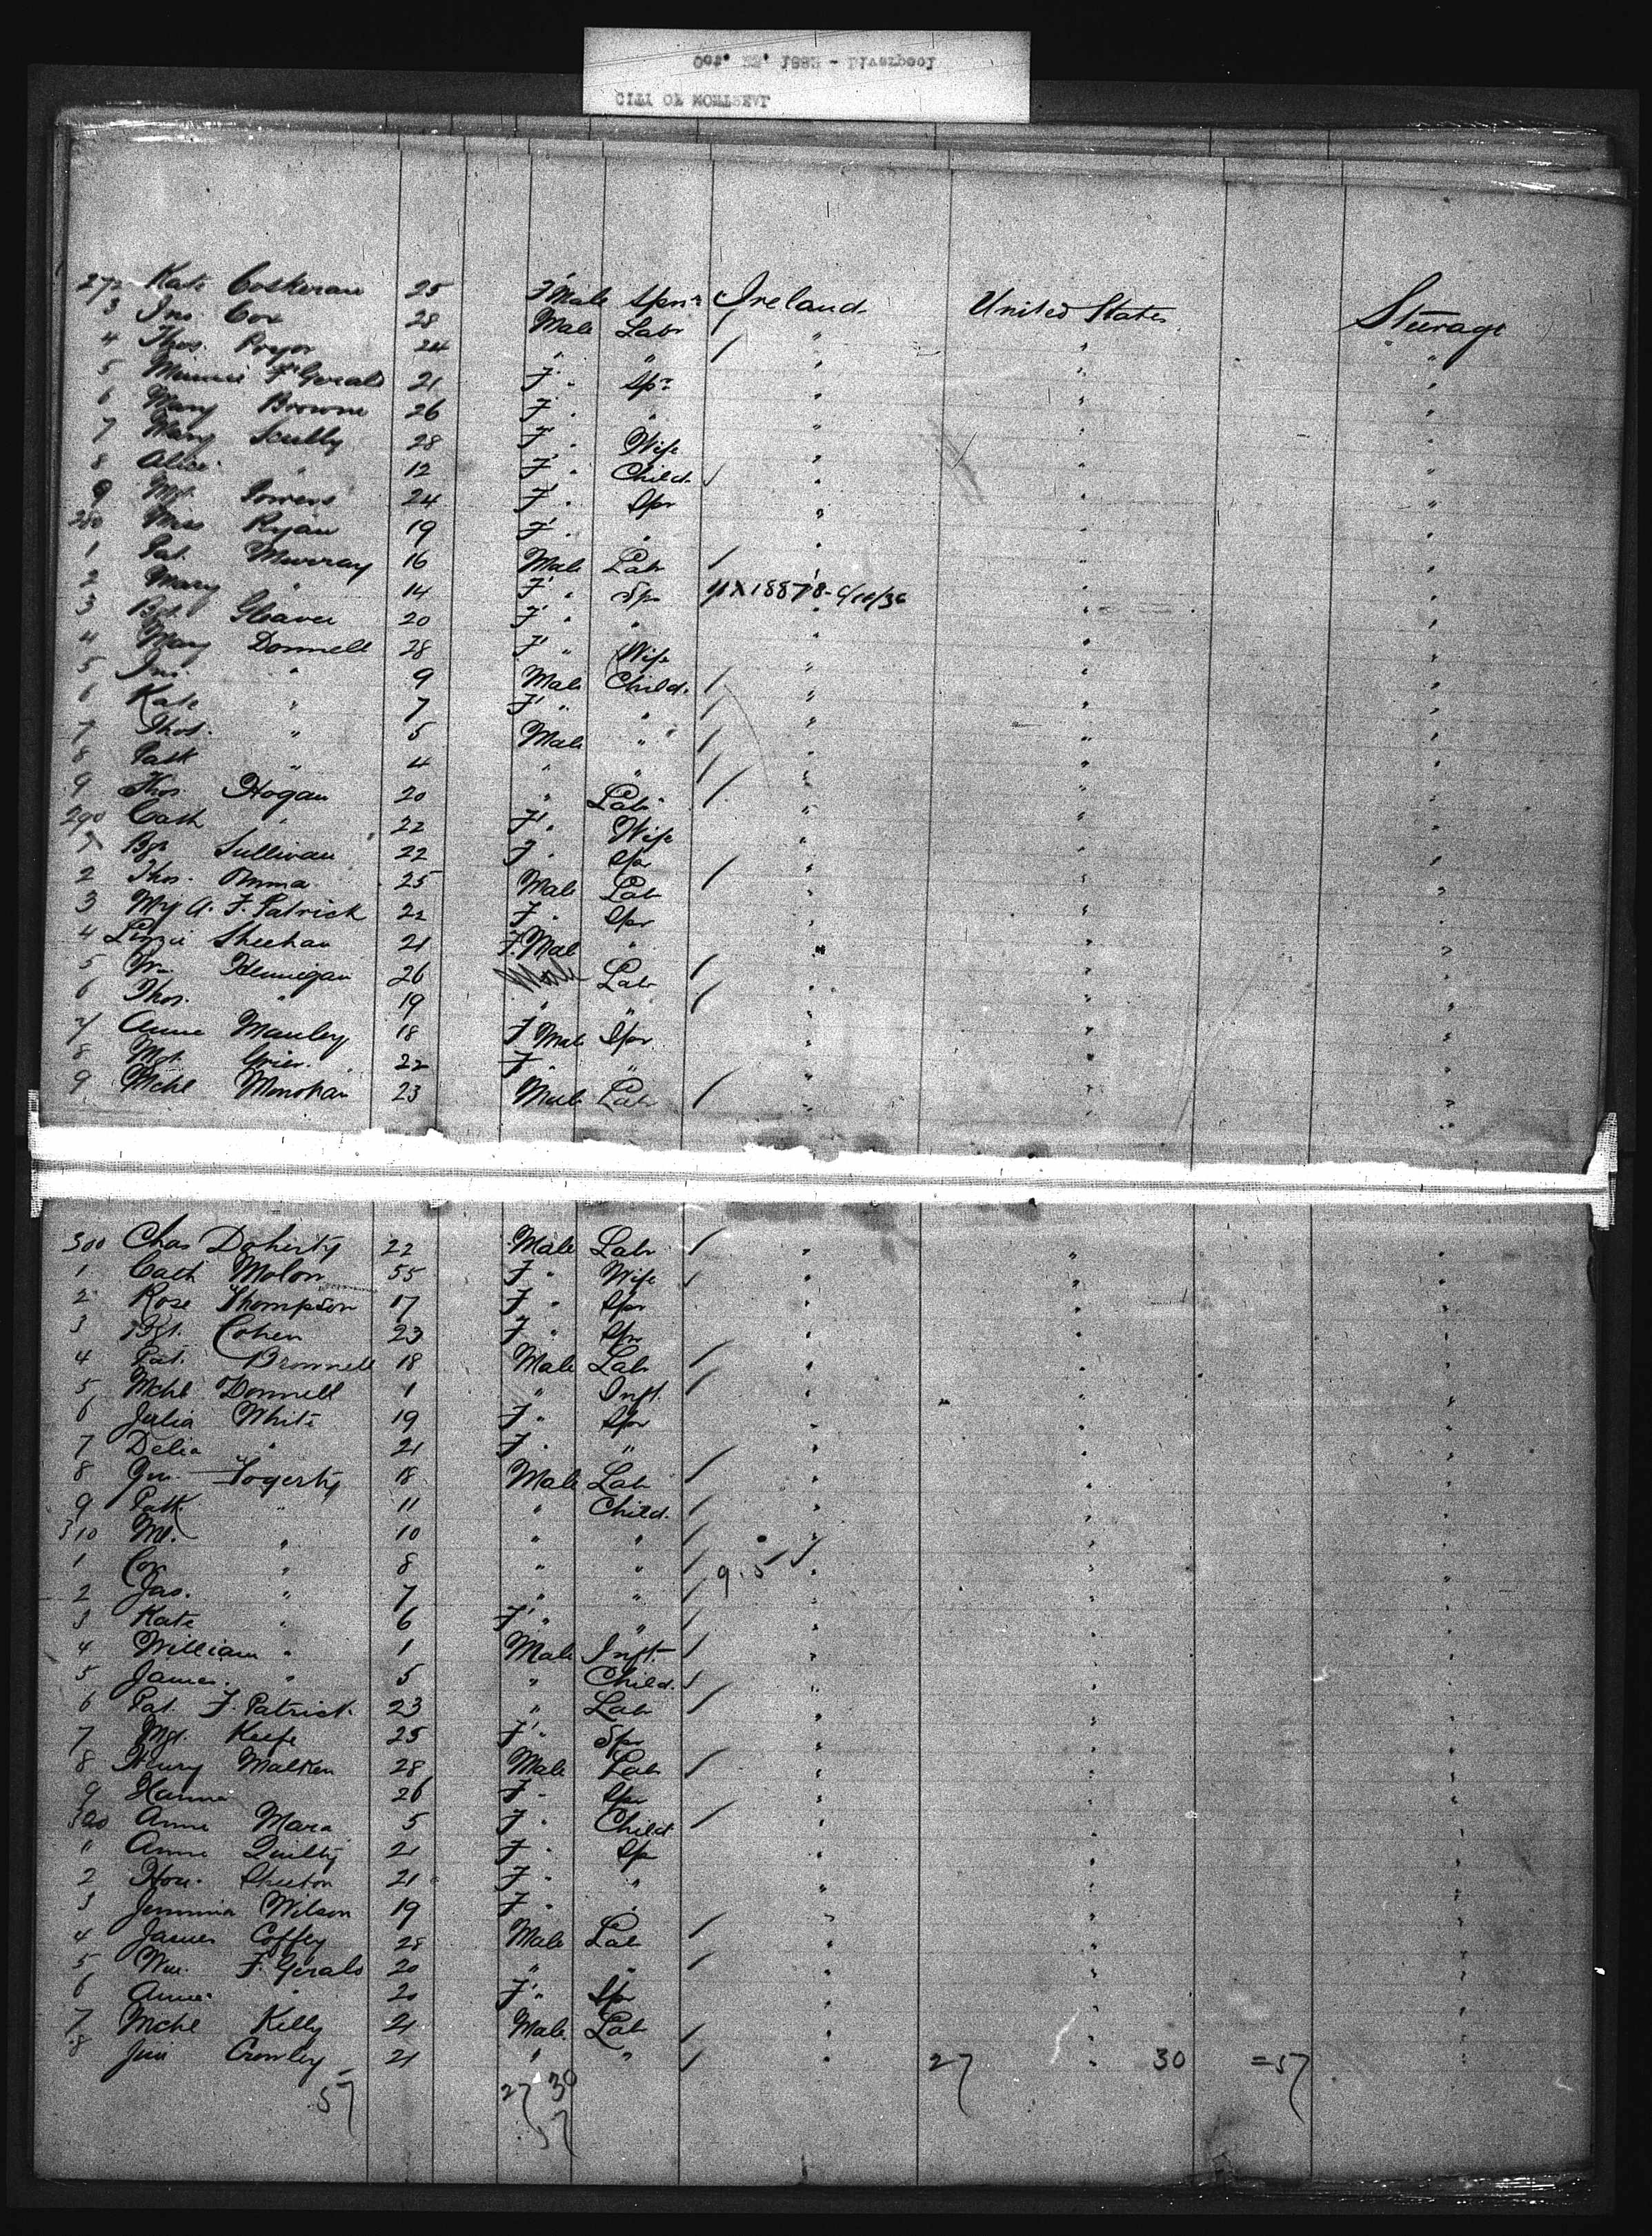 272 Kate Coskeran 25 F Male Spr Ireland United States Steerage
3 Jno. Cox 28 Male Labr " " "
4 Thos. Pryor 24 " " " " "
5 Minnie F'Gerald 21 F " Spr " " "
6 Mary Browne 26 F " " " " "
7 Mary Scully 28 F " Wife " " "
8 Alice " 12 F " Child " " "
9 Mt. Powers 24 F " Spr " " "
280 Miss Ryan 19 F " " " " "
1 Pat. Murray 16 Male Labr " " "
2 Mary " 14 F " Sp " "
3 Bgt. Gleaver 20 F " " " " "
4 Mary Donnell 28 F " Wife " " "
5 Jno. " 9 Male Child. " " "
6 Kate " 7 F " " " " "
7 Thos. " 5 Male " " " "
8 Patk " 4 " " " " "
9 Thos. Hogan 20 " Labr " " "
290 Cath " 22 F " Wife " " "
1 Bgt Sullivan 22 F " Spr " " "
2 Thos. 25 Male Labr " " "
3 My A. F. Patrick 22 F " Spr " " "
4 Lizzie Sheehan 21 F. Male " " " "
5 Wm Hennigan 26 Labr " " "
6 Thos. " 19 " " " " "
7 Anne Manley 18 F Male Spr " " "
8 Mgt. Grier 22 F " " " " "
9 Mchl Monohan 23 Male Labr " " "
300 Chas Doherty 22 Male Labr " " "
1 Cath Molon 55 F " Wife " " "
2 Rose Thompson 17 F " Spr " " "
3 Bgt. Cohen 23 F " Spr " " "
4 Pat. Brownell 18 Male Labr " " "
5 Mchl Donnell 1 " Inft. " " "
6 Julia White 19 F " Spr " " "
7 Delia " 21 F " " " " "
8 Jno. Fogerty 18 Male Labr " " "
9 Patk " 11 " Child. " " "
310 Ml. " 10 " " " " "
1 Con " 8 " " 9.5 " " "
2 Jas. " 7 " " " " "
3 Kate " 6 F " " " " "
4 William " 1 Male Inft. " " "
5 James " 5 " Child. " " "
6 Pat. F. Patrick 23 " Labr " " "
7 Mgt. Keefe 25 F " Spr " " "
8 Henry Malken 28 Male Labr " " "
9 Hanna 26 F " Spr " " "
320 Anne Mara 5 F " Child " " "
" Anne Quilty 21 F " Sp " " "
2 Hon. 21 F " " " " "
3 Jemmina Wilson 19 F " " " " "
4 James Coffey 28 Male Lab " " "
5 Wm. F. Gerald 20 " " " " "
6 Annie " 20 F " Spr " " "
7 Mchl Killy 21 Male Lab " " "
8 Jno Crowley 21 " " " 27 " 30 =57 "
57 27 30
57